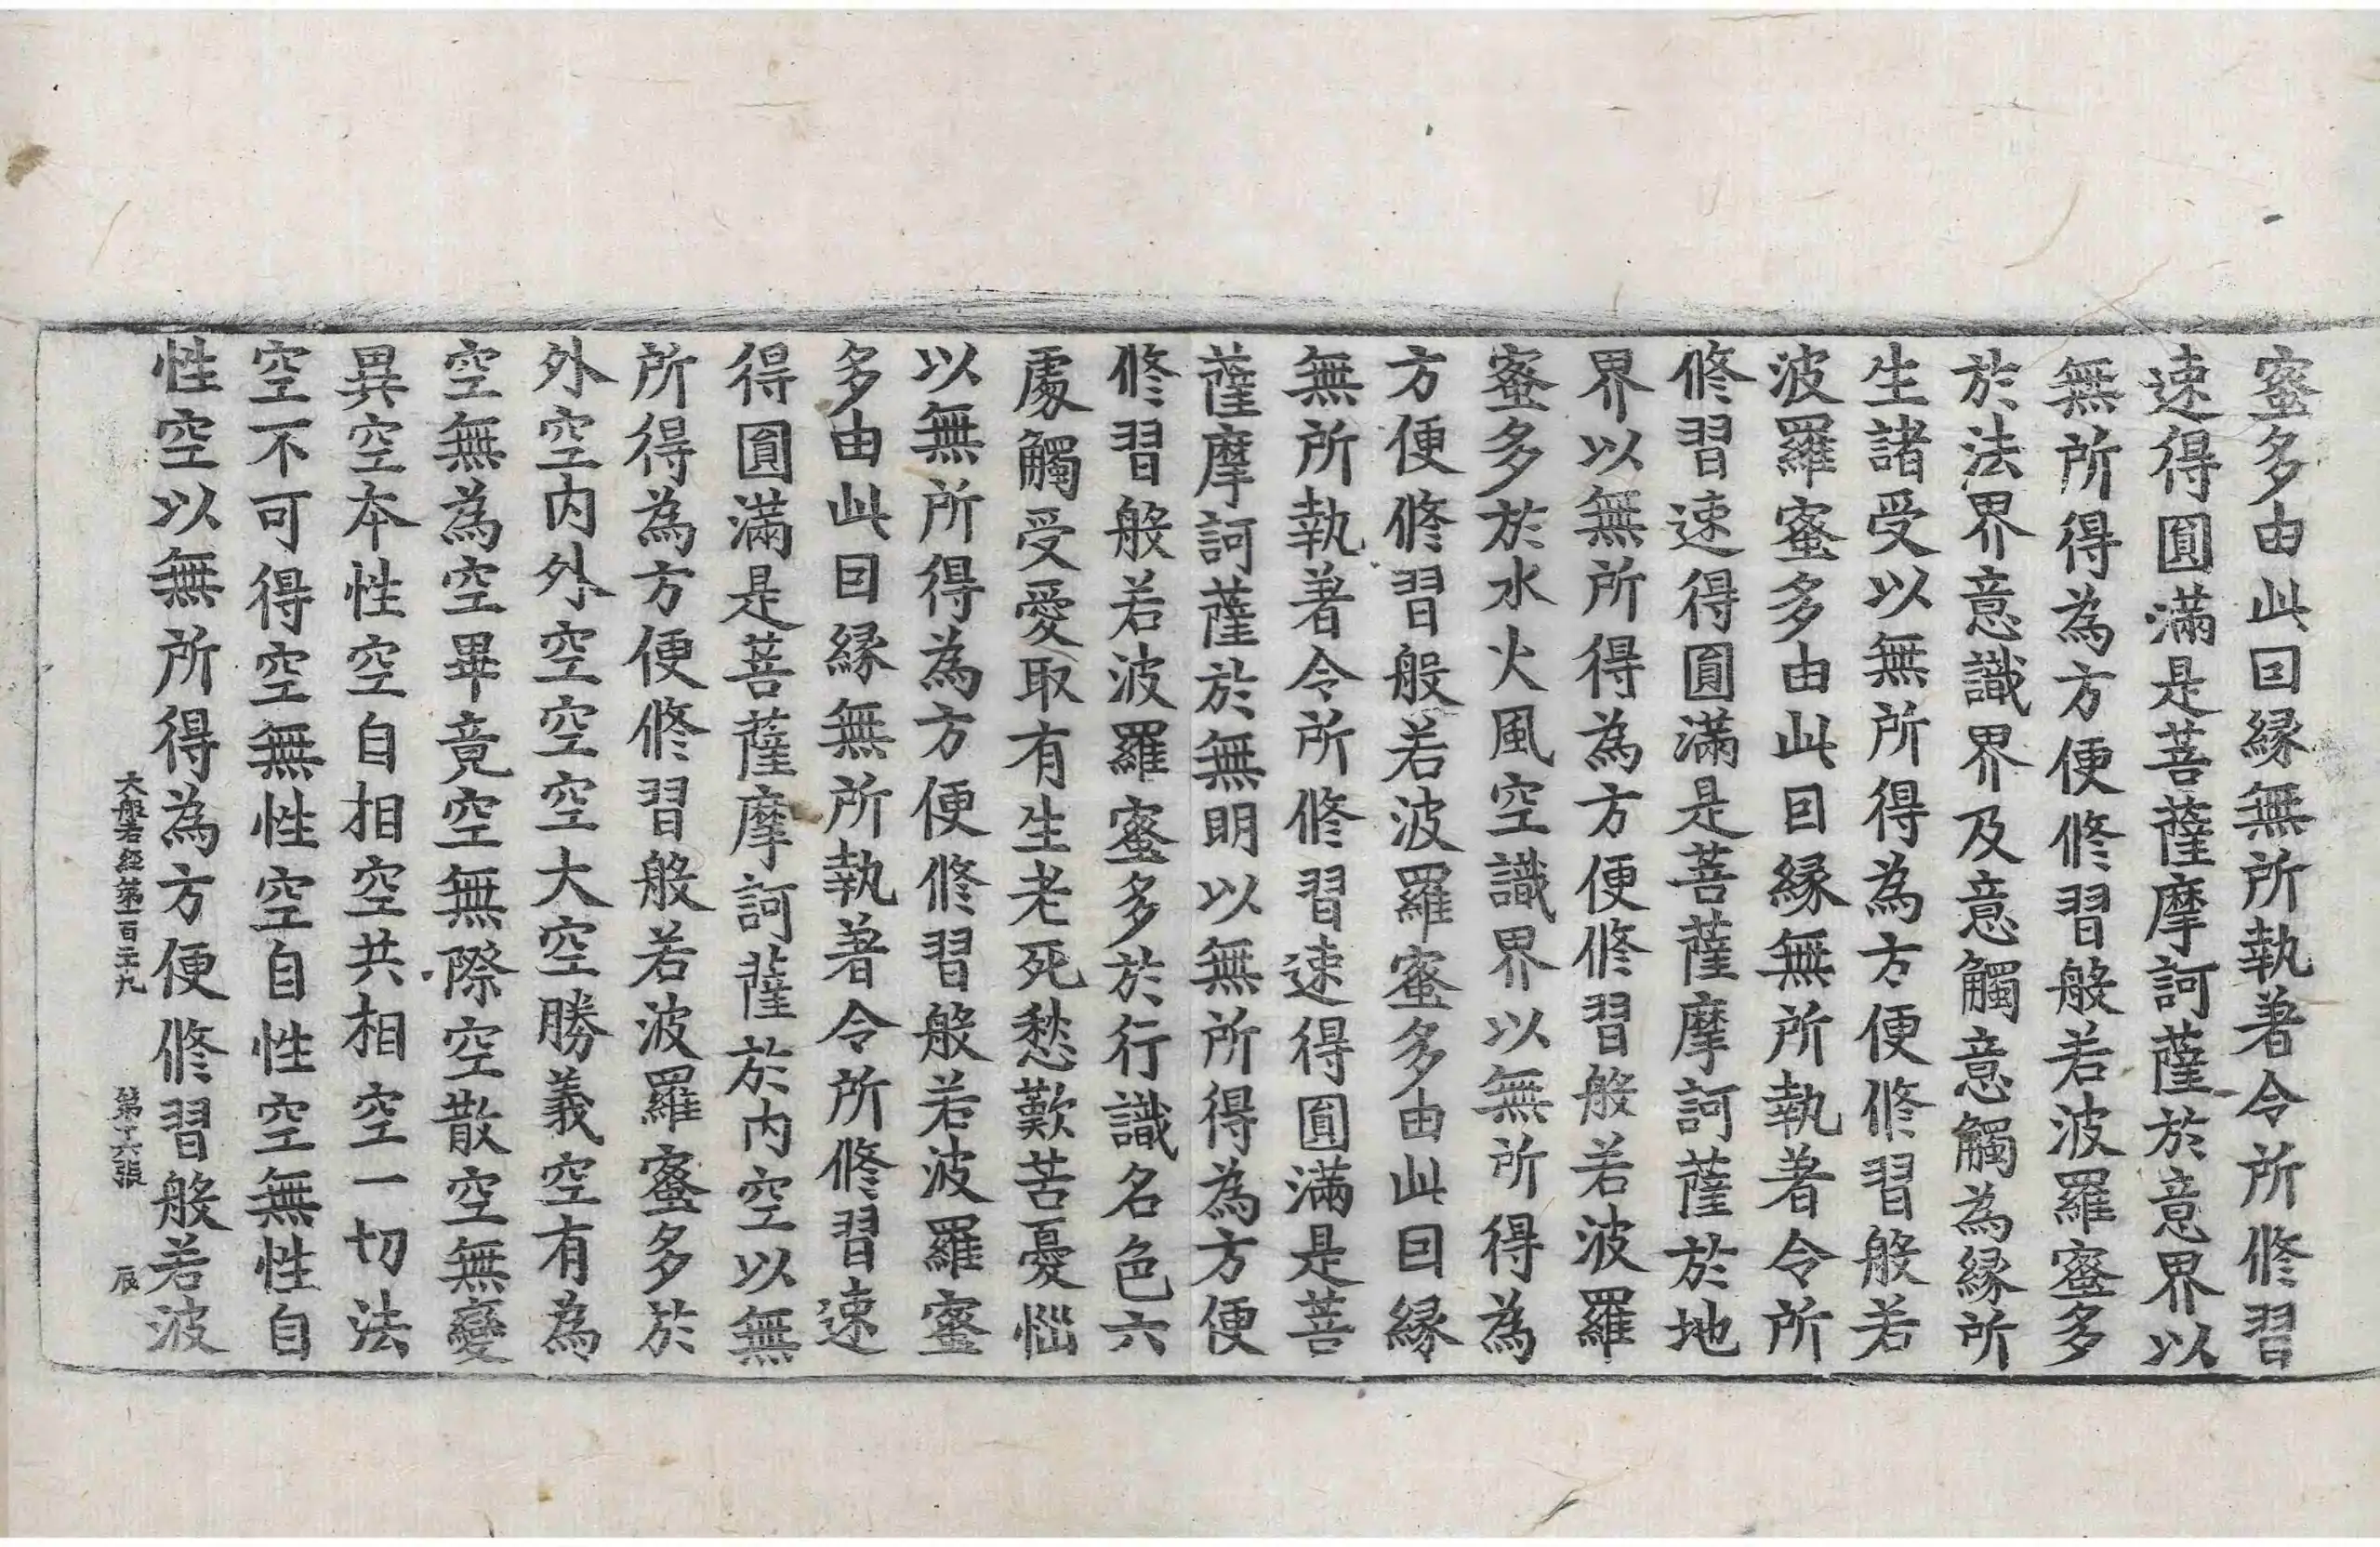 蜜多由此因縁無所執著令所修習
速得圓滿是菩薩摩訶薩於意界以
無所得為方便修習般若波羅蜜多
於法界意識界及意觸意觸為縁所
生諸受以無所得為方便修習般若
波羅蜜多由此因縁無所執著令所
修習速得圓滿是菩薩摩訶薩於地
界以無所得為方便修習般若波羅
蜜多於水火風空識界以無所得為
方便修習般若波羅蜜多由此因縁
無所執著令所修習速得圓滿是菩
薩摩訶薩於無明以無所得為方便
修習般若波羅蜜多於行識名色六
處觸受愛取有生老死愁歎苦憂惱
以無所得為方便修習般若波羅蜜
多由此因縁無所執著令所修習速
得圓滿是菩薩摩訶薩於内空以無
所得為方便修習般若波羅蜜多於
外空内外空空空大空勝義空有為
空無為空畢竟空無際空散空無變
異空本性空自相空共相空一切法
空不可得空無性空自性空無性自
性空以無所得為方便修習般若波
大般若經第一百二十九 第十六張 辰